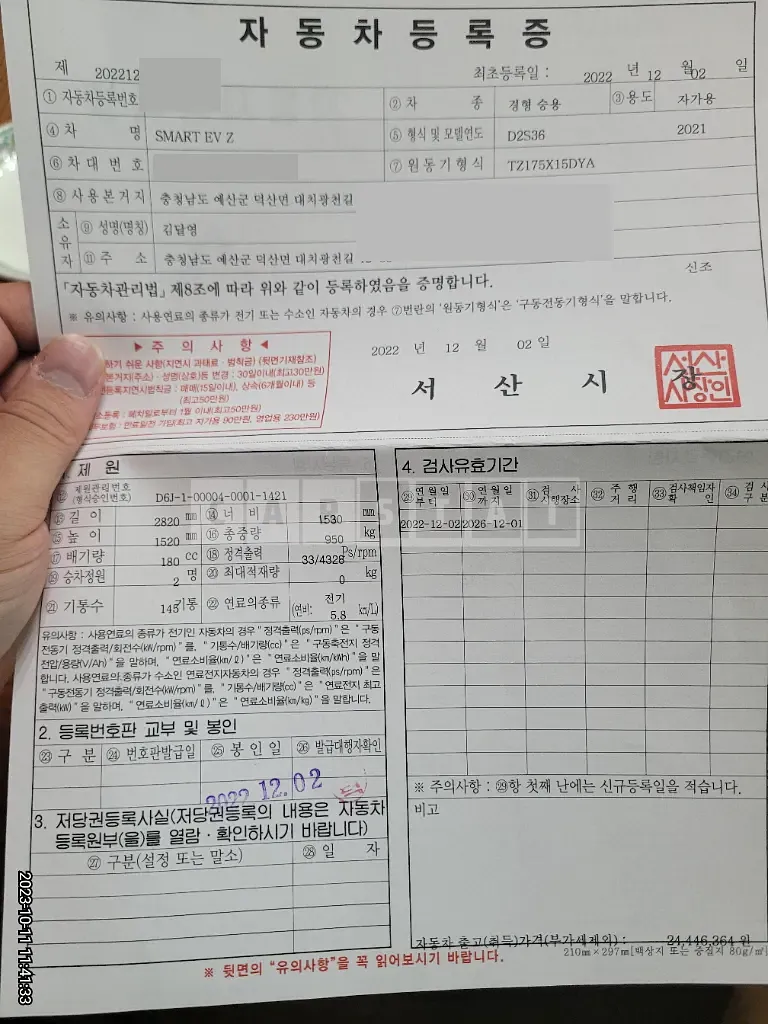 자동차등록증
제 202212
최초등록일 : 2022 년 12 월 02 일
① 자동차등록번호 ② 차 종 경형 승용 ③ 용도 자가용
④ 차 명 SMART EV Z ⑤ 형식 및 모델연도 D2S36 2021
⑥ 차 대 번 호 ⑦ 원 동 기 형 식 TZ175X15DYA
⑧ 사 용 본 거 지 충청남도 예산군 덕산면 대치광천길
소유자 ⑨ 성명(명칭) 김달영
⑪ 주 소 충청남도 예산군 덕산면 대치광천길
「자동차관리법」 제8조에 따라 위와 같이 등록하였음을 증명합니다.
신조
※ 유의사항 : 사용연료의 종류가 전기 또는 수소인 자동차의 경우 ⑦번란의 '원동기형식'은 '구동전동기형식'을 말합니다.
▶ 주 의 사 항 ◀
하기 쉬운 사항(지연시 과태료 · 범칙금) (뒷면기재참조)
본거지(주소) · 성명(상호)등 변경 : 30일이내(최고30만원)
전등록지연시범칙금 : 매매(15일이내), 상속(6개월이내) 등
(최고50만원)
소등록 : 폐차일로부터 1월 이내(최고50만원)
무보험 : 만료일전 가입(최고 자가용 90만원, 영업용 230만원)
2022 년 12 월 02 일
서 산 시 장
서산시장인
제 원
제원관리번호 (형식승인번호) D6J-1-00004-0001-1421
길 이 2820 mm ⑭ 너 비 1530 mm
⑮ 높 이 1520 mm ⑯ 총중량 950 kg
⑰ 배기량 180 cc ⑱ 정격출력 33/4328 Ps/rpm
⑲ 승차정원 2 명 ⑳ 최대적재량 0 kg
㉑ 기통수 145 기통 ㉒ 연료의종류 전기 (연비: 5.8 km/L)
유의사항 : 사용연료의 종류가 전기인 자동차의 경우 "정격출력(ps/rpm)"은 "구동
전동기 정격출력/회전수(kW/rpm)"를, "기통수/배기량(cc)"은 "구동축전지 정격
전압/용량(V/Ah)"을 말하며, "연료소비율(km/ℓ)"은 "연료소비율(km/kWh)"을 말
합니다. 사용연료의 종류가 수소인 연료전지자동차의 경우 "정격출력(ps/rpm)"은
"구동전동기 정격출력/회전수(kW/rpm)"를, "기통수/배기량(cc)"은 "연료전지 최고
출력(kW)"을 말하며, "연료소비율(km/ℓ)"은 "연료소비율(km/kg)"을 말합니다.
2. 등록번호판 교부 및 봉인
㉓ 구 분 ㉔ 번호판발급일 ㉕ 봉 인 일 ㉖ 발급대행자확인
2022 12. 02
3. 저당권등록사실(저당권등록의 내용은 자동차
등록원부(을)를 열람 · 확인하시기 바랍니다)
㉗ 구분(설정 또는 말소) ㉘ 일 자
4. 검사유효기간
㉙ 연월일부터 ㉚ 연월일까지 ㉛ 검사시행장소 ㉜ 주행거리 ㉝ 검사책임자확인 ㉞ 검사구분
2022-12-02 2026-12-01
※ 주의사항 : ㉙항 첫째 난에는 신규등록일을 적습니다.
비고
자동차 출고(취득)가격(부가세제외) : 24,446,364 원
210mm×297mm[백상지 또는 중질지 80g/㎡
※ 뒷면의 "유의사항"을 꼭 읽어보시기 바랍니다.
2023-10-11 11:41:33